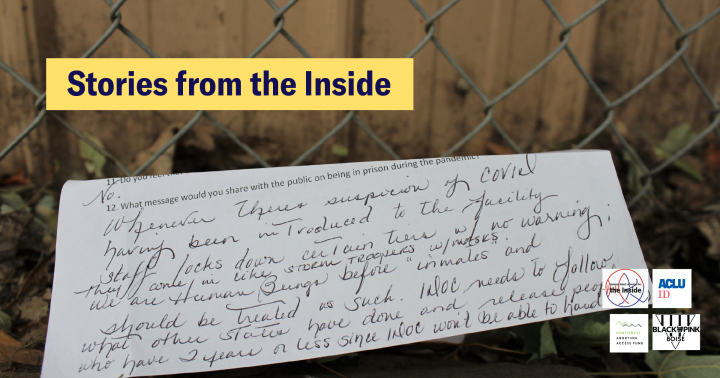 Stories from the Inside
11. Do you feel tha
No.
12. What message would you share with the public on being in prison during the pandemic?
Whenever theres suspicion of covid
having been introduced to the facility
staff locks down certain tiers w/ no warning;
they come in like STORM TROOPERS w/MASKS.
We are Human Beings before "inmates" and
should be treated as such. IDOC needs to follow
what other states have done and release people
who have 2 years or less since IDOC won't be able to hand
the Inside
ACLU
ID
NORTHWEST
ABORTION
ACCESS FUND
BLACK PINK
BOISE